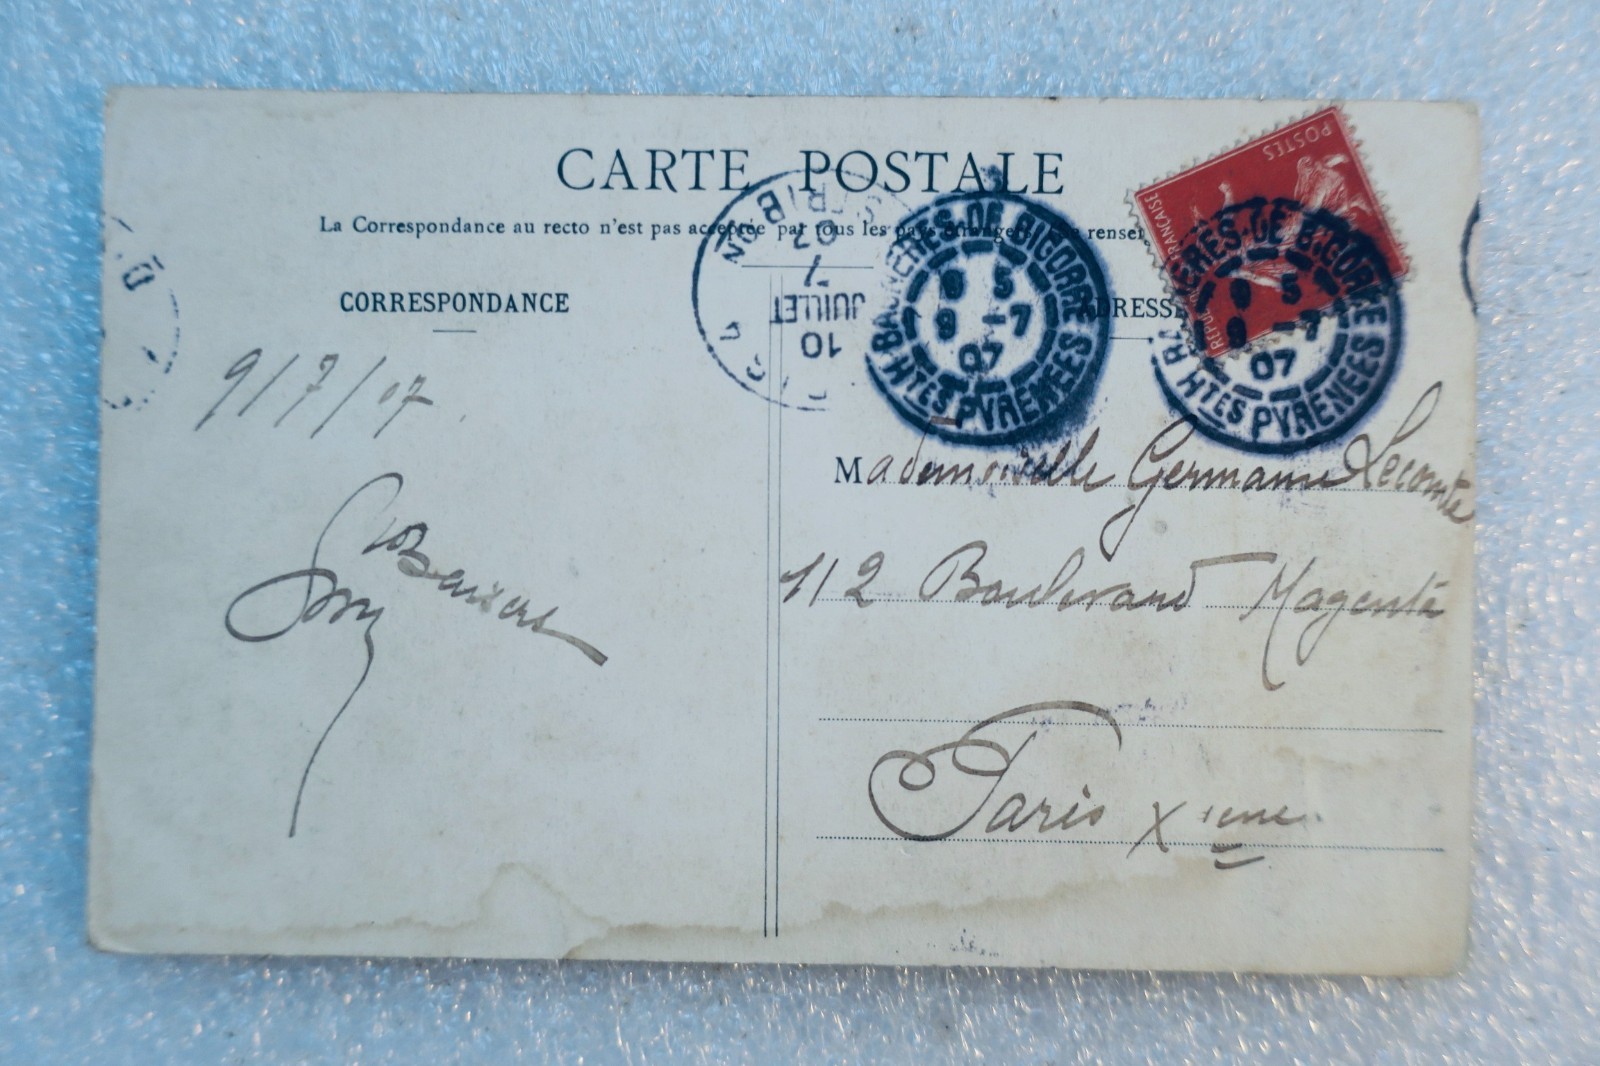 CARTE POSTALE
La Correspondance au recto n'est pas acceptée par tous les pays étrangers (Se renseig
CORRESPONDANCE
ADRESSE
POSTES
REPUB FRANÇAISE
BAGNÈRES-DE-BIGORRE
9 5
9 -7
07
HTES PYRENEES
B GÈRES-DE-BIGORRE
9 5
9 -7
07
HTES PYRENEES
DISTRIBON
10
JUILLET
7
07
9/7/07.
Baisers
Mademoiselle Germaine Lecomte
112 Boulevard Magenta
Paris Xième